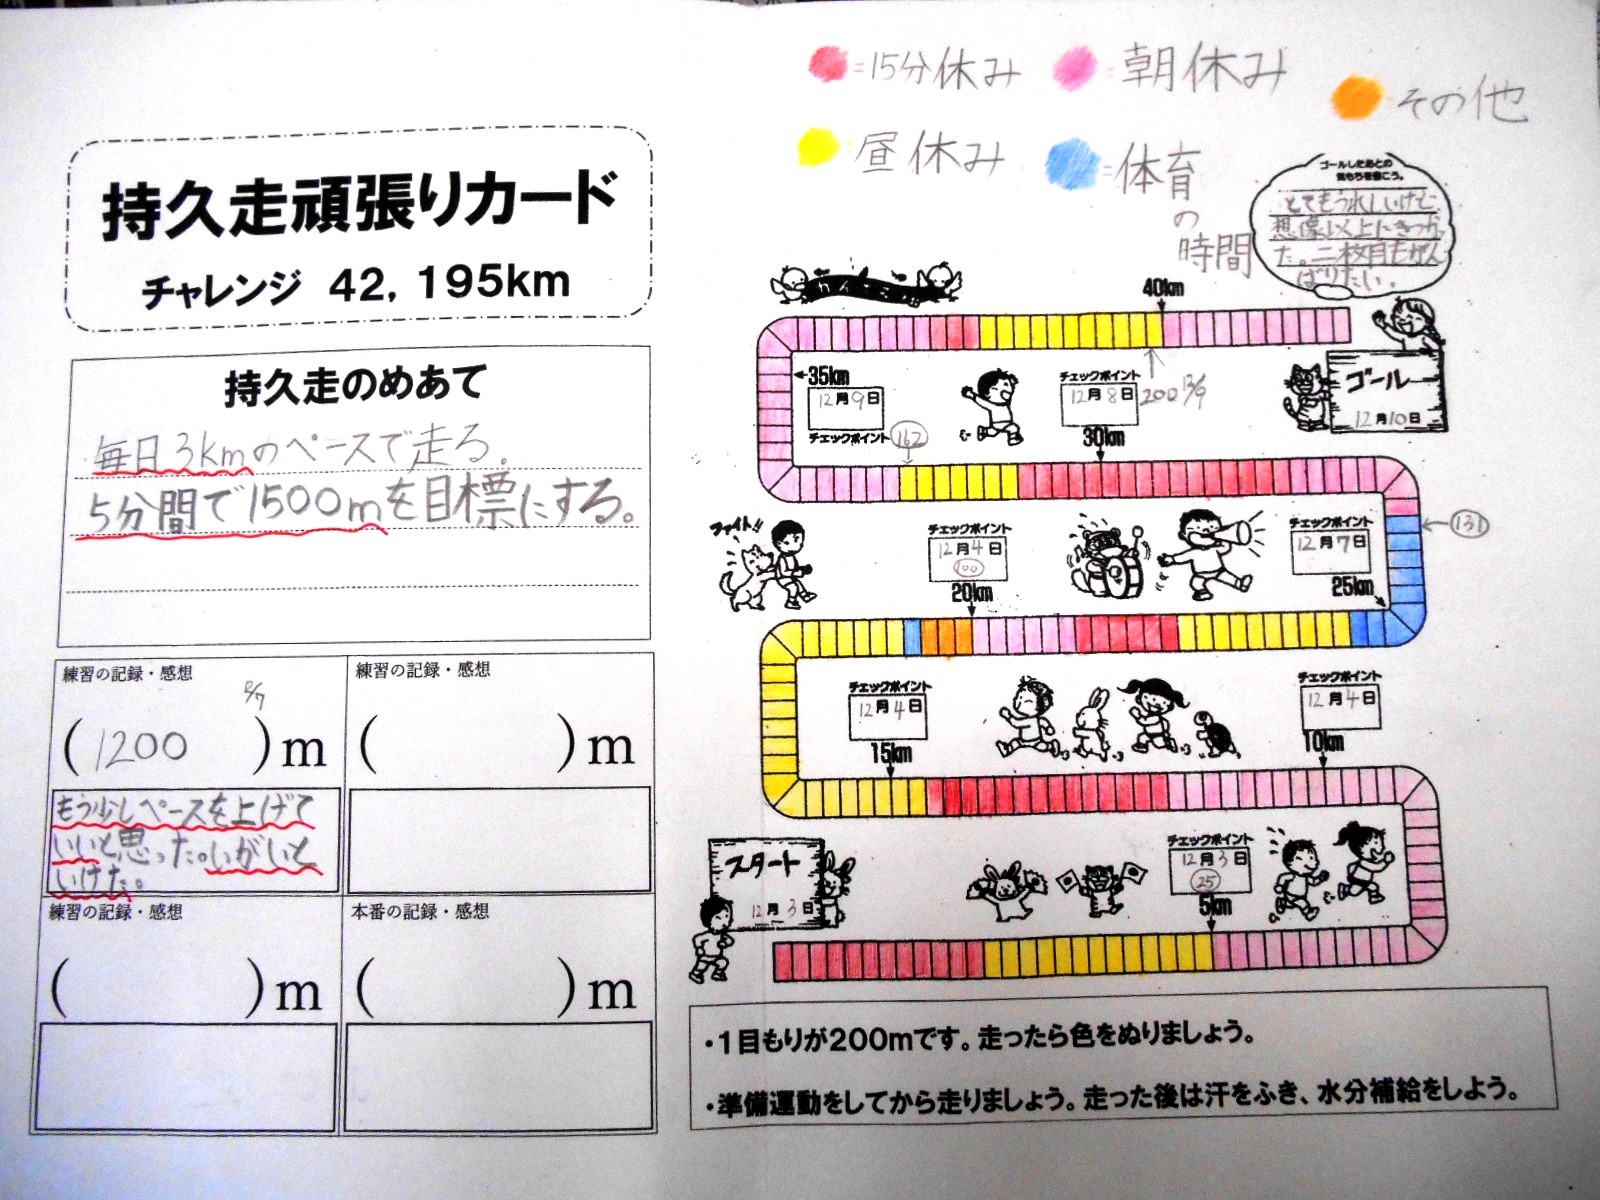 持久走頑張りカード
チャレンジ 42,195km
持久走のめあて
毎日3kmのペースで走る。
5分間で1500mを目標にする。
練習の記録・感想
12/7
(1200)m
もう少しペースを上げて
いいと思った。いがいと
いけた。
練習の記録・感想
( )m
練習の記録・感想
( )m
本番の記録・感想
( )m
=15分休み
朝休み
その他
昼休み
=体育の時間
ゴールしたあとの
気もちを書こう。
とてもうれしいけど
想像以上にきつかっ
た。二枚目もがん
ばりたい。
40km
ゴール
12月10日
35km
12月9日
チェックポイント
162
チェックポイント
12月8日
30km
200 12/9
ファイト!!
チェックポイント
12月4日
100
20km
チェックポイント
12月7日
25km
131
チェックポイント
12月4日
15km
12月4日
チェックポイント
10km
チェックポイント
12月3日
25
5km
スタート
12月3日
・1目もりが200mです。走ったら色をぬりましょう。
・準備運動をしてから走りましょう。走った後は汗をふき、水分補給をしよう。